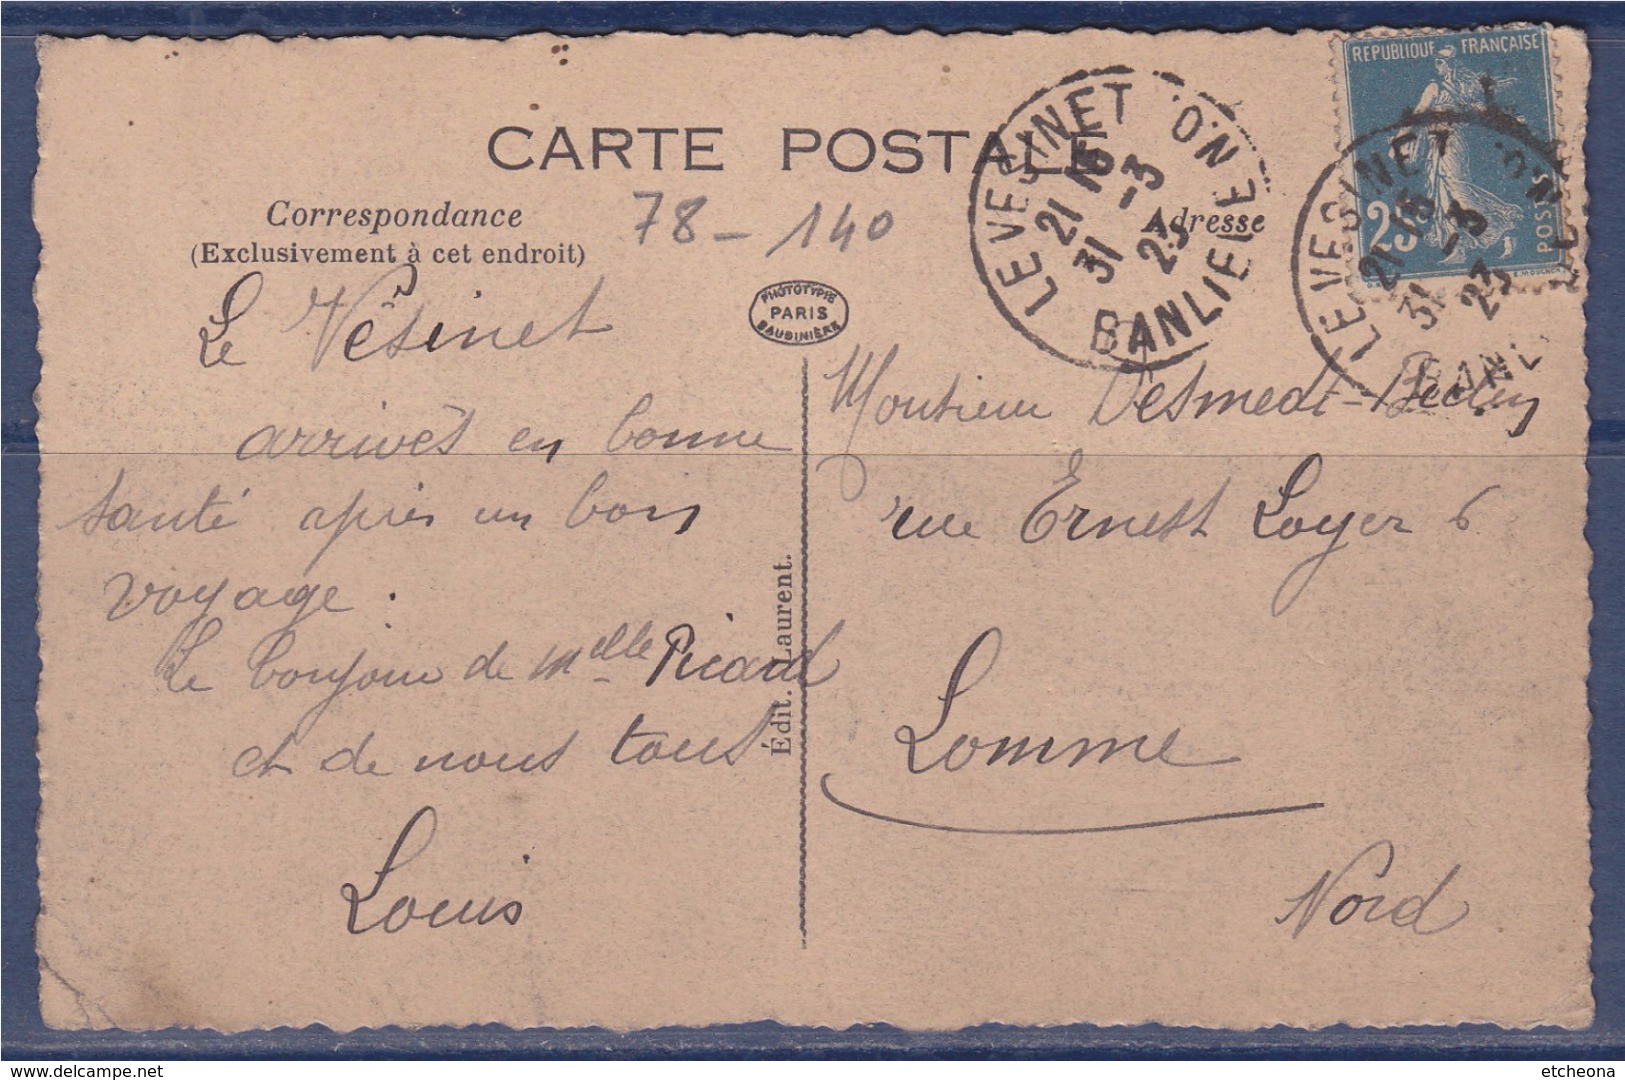 CARTE POSTALE
Correspondance
(Exclusivement à cet endroit)
78 - 140
Adresse
PHOTOTYPIE
PARIS
BAUDINIÈRE
LE VESINET
21 15
31 -3
23
BANLIEUE N.O.
REPUBLIQUE FRANÇAISE
25
POSTES
LE VESINET
21 15
31 -3
23
Le Vésinet
arrivés en bonne
santé après un bon
voyage.
Le bonjour de Melle Picard
et de nous tous
Louis
Édit. Laurent.
Monsieur Desmedt-
rue Ernest Loyer 6
Lomme
Nord
etcheona